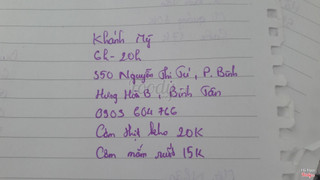 Khánh Mỹ
6h - 20h
550 Nguyễn Thị Tú, P. Bình
Hưng Hòa B, Bình Tân
0909 604 766
Cơm thịt kho 20K
Cơm mắm ruốt 15K